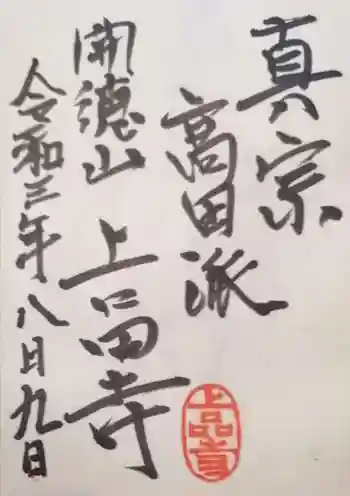 真宗
高田派
開德山 上品寺
令和三年八月九日
上品寺